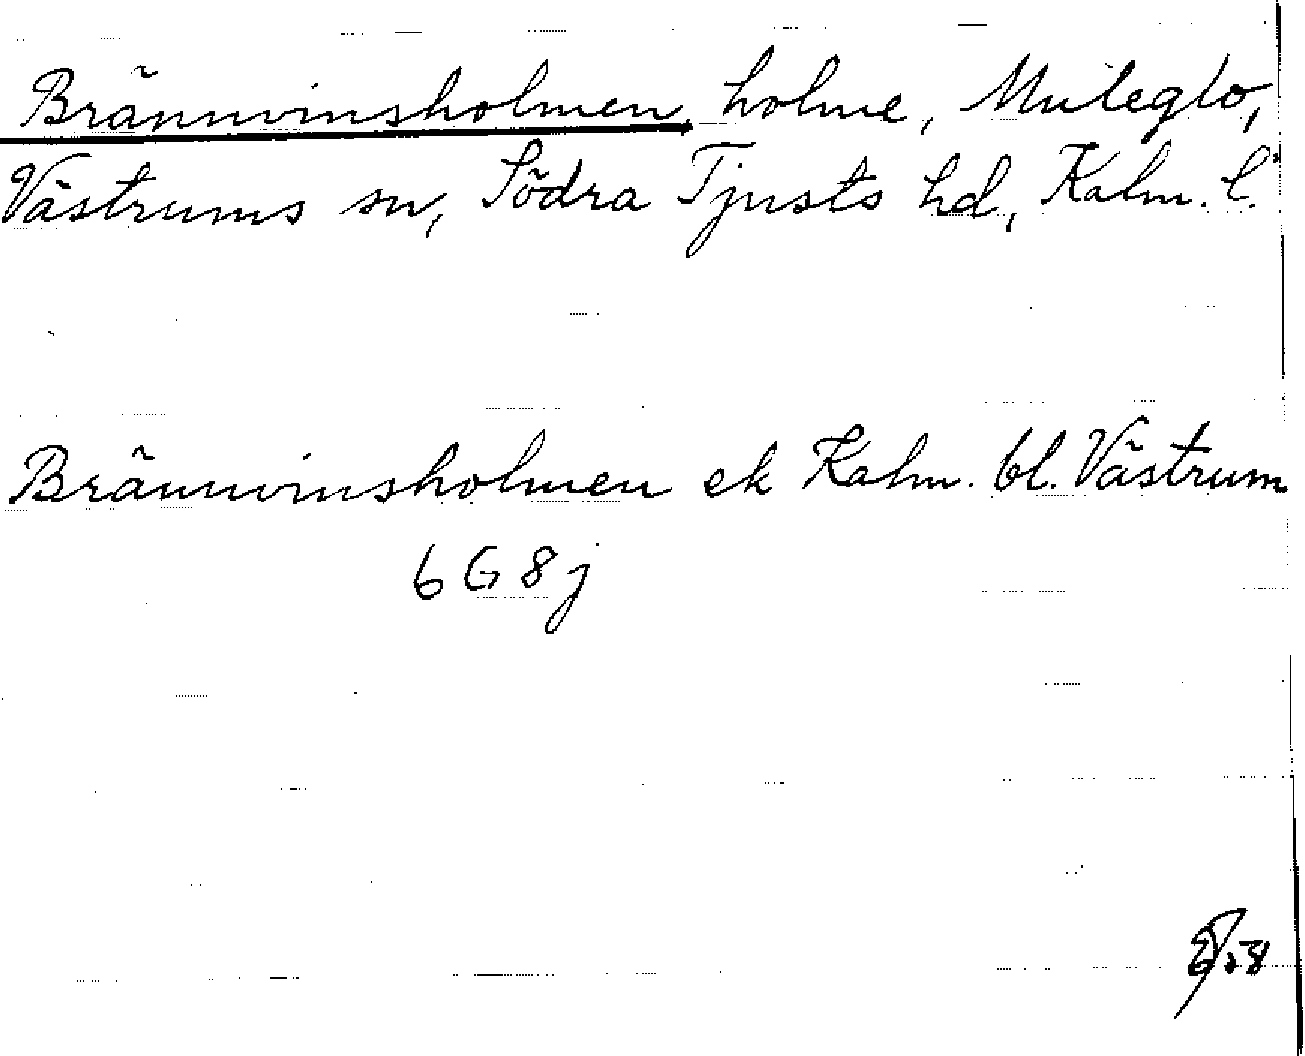 Brännvinsholmen, holme, Muleglo,
Västrums sn, Södra Tjusts hd, Kalm. l.
Brännvinsholmen ek Kalm. bl. Västrum
6 G 8 j